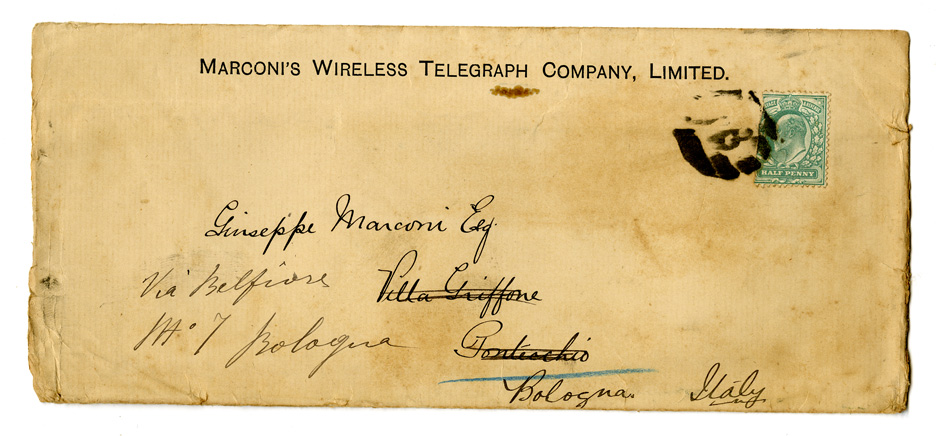 MARCONI'S WIRELESS TELEGRAPH COMPANY, LIMITED.
POSTAGE REVENUE
HALF PENNY
Giuseppe Marconi Esq.
Villa Griffone
Via Belfiore
Pontecchio
No 7 Bologna
Bologna. Italy